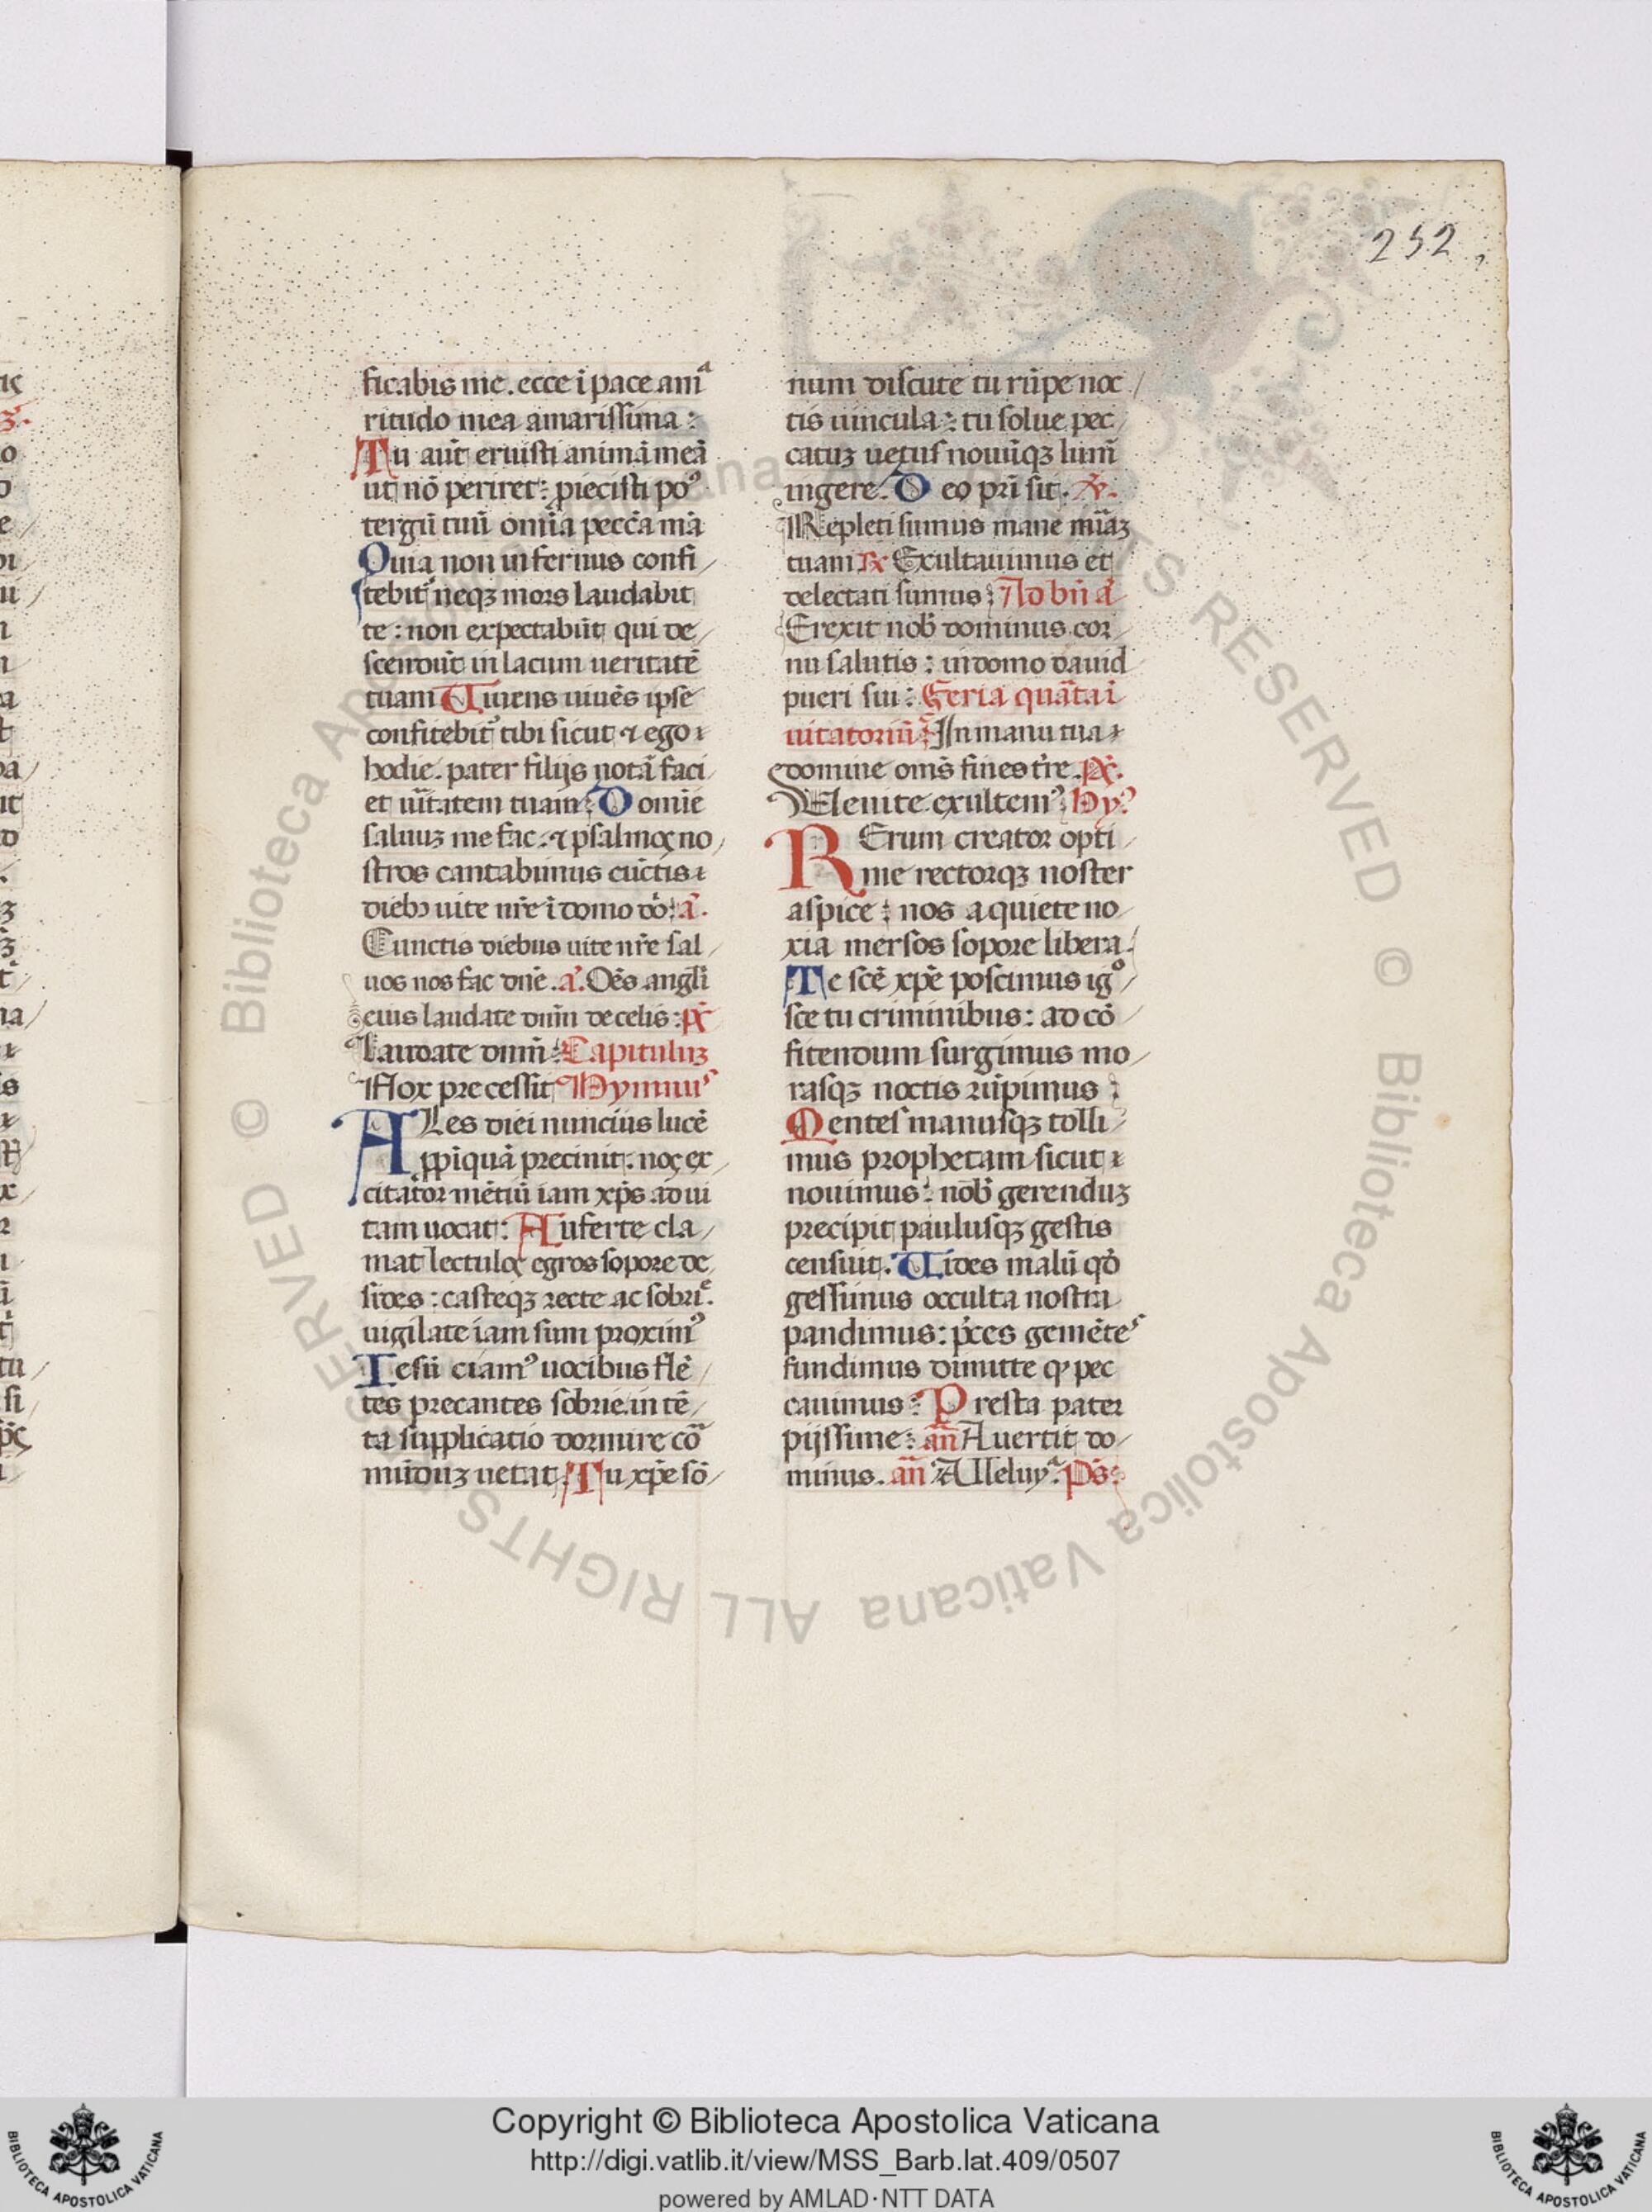 252
ficabis me. ecce ī pace amᵃ
ritudo mea amarissima:
Tu aūt eruisti animā meā
ut nō periret: ꝓiecisti poꝰ
tergū tuū omīa peccā mā
Quia non infernus confi
tebitʳ neqꝫ mors laudabit
te: non expectabūt qui de
scendūt in lacum ueritatē
tuam Uiuens uiuēs ipse
confitebitʳ tibi sicut ⁊ ego
hodie. pater filijs notā faci
et uītatem tuam: Domīe
saluuꝫ me fac: ⁊ psalmoꝫ no
stros cantabimus cūctis
diebꝫ uite nr̄e ī domo dō: a.
Cunctis diebus uite nr̄e sal
uos nos fac dn̄e. a. Oēs angli
eius laudate dn̄m de celis: pꝫ
Laudate dn̄m: Capituluꝫ
Nox precessit Hymnuˢ
ALes diei nuncius lucē
ꝓpīquā precinit: noꝫ ex
citator mētiū iam xp̄s ad ui
tam uocat: Auferte cla
mat lectuloꝫ egros sopore de
sides: casteqꝫ recte ac sobrⁱᵉ.
uigilate iam sum proximꝰ
Iesū ciamꝰ uocibus flē
tes precantes sobrie: in tē
ta supplicatio dormire cō
mūduꝫ uetat. Tu xp̄e sō
num discute tu rūpe noc
tis uincula: tu solue pec
catuꝫ uetus nouūqꝫ lumē
ingere. Deo prī sit. ℣.
Repleti sumus mane mīaꝫ
tuam ℞ Exultauimus et
delectati sumus: Ad bn̄ a
Erexit nob̄ dominus cor
nu salutis: in domo dauid
pueri sui: Feria quārta ī
uitatoriū Jn manu tua
domine oms̄ fines tr̄e. pꝫ.
Uenite exultemꝰ: Hyꝰ
RErum creator opti
me rectorqꝫ noster
aspice: nos a quiete no
xia mersos sopore libera.
Te scē xp̄e poscimus igᵒ
sce tu criminibus: ad cō
fitendum surgimus mo
rasqꝫ noctis rūpimus:
Mentes manusqꝫ tolli
mus prophetam sicut
nouimus: nob̄ gerenduꝫ
precipit paulusqꝫ gestis
censuit. Uides malū qđ
gessimus occulta nostra
pandimus: p̄ces gemēteˢ
fundimus dimitte ꝙ pec
cauimus: Presta pater
pijssime: an̄ Auertit do
minus. an̄ Alleluyᵃ. Ps̄.
Copyright © Biblioteca Apostolica Vaticana
http://digi.vatlib.it/view/MSS_Barb.lat.409/0507
powered by AMLAD·NTT DATA
BIBLIOTECA APOSTOLICA VATICANA
BIBLIOTECA APOSTOLICA VATICANA
© Biblioteca Apostolica Vaticana ALL RIGHTS RESERVED
© Biblioteca Apostolica Vaticana ALL RIGHTS RESERVED